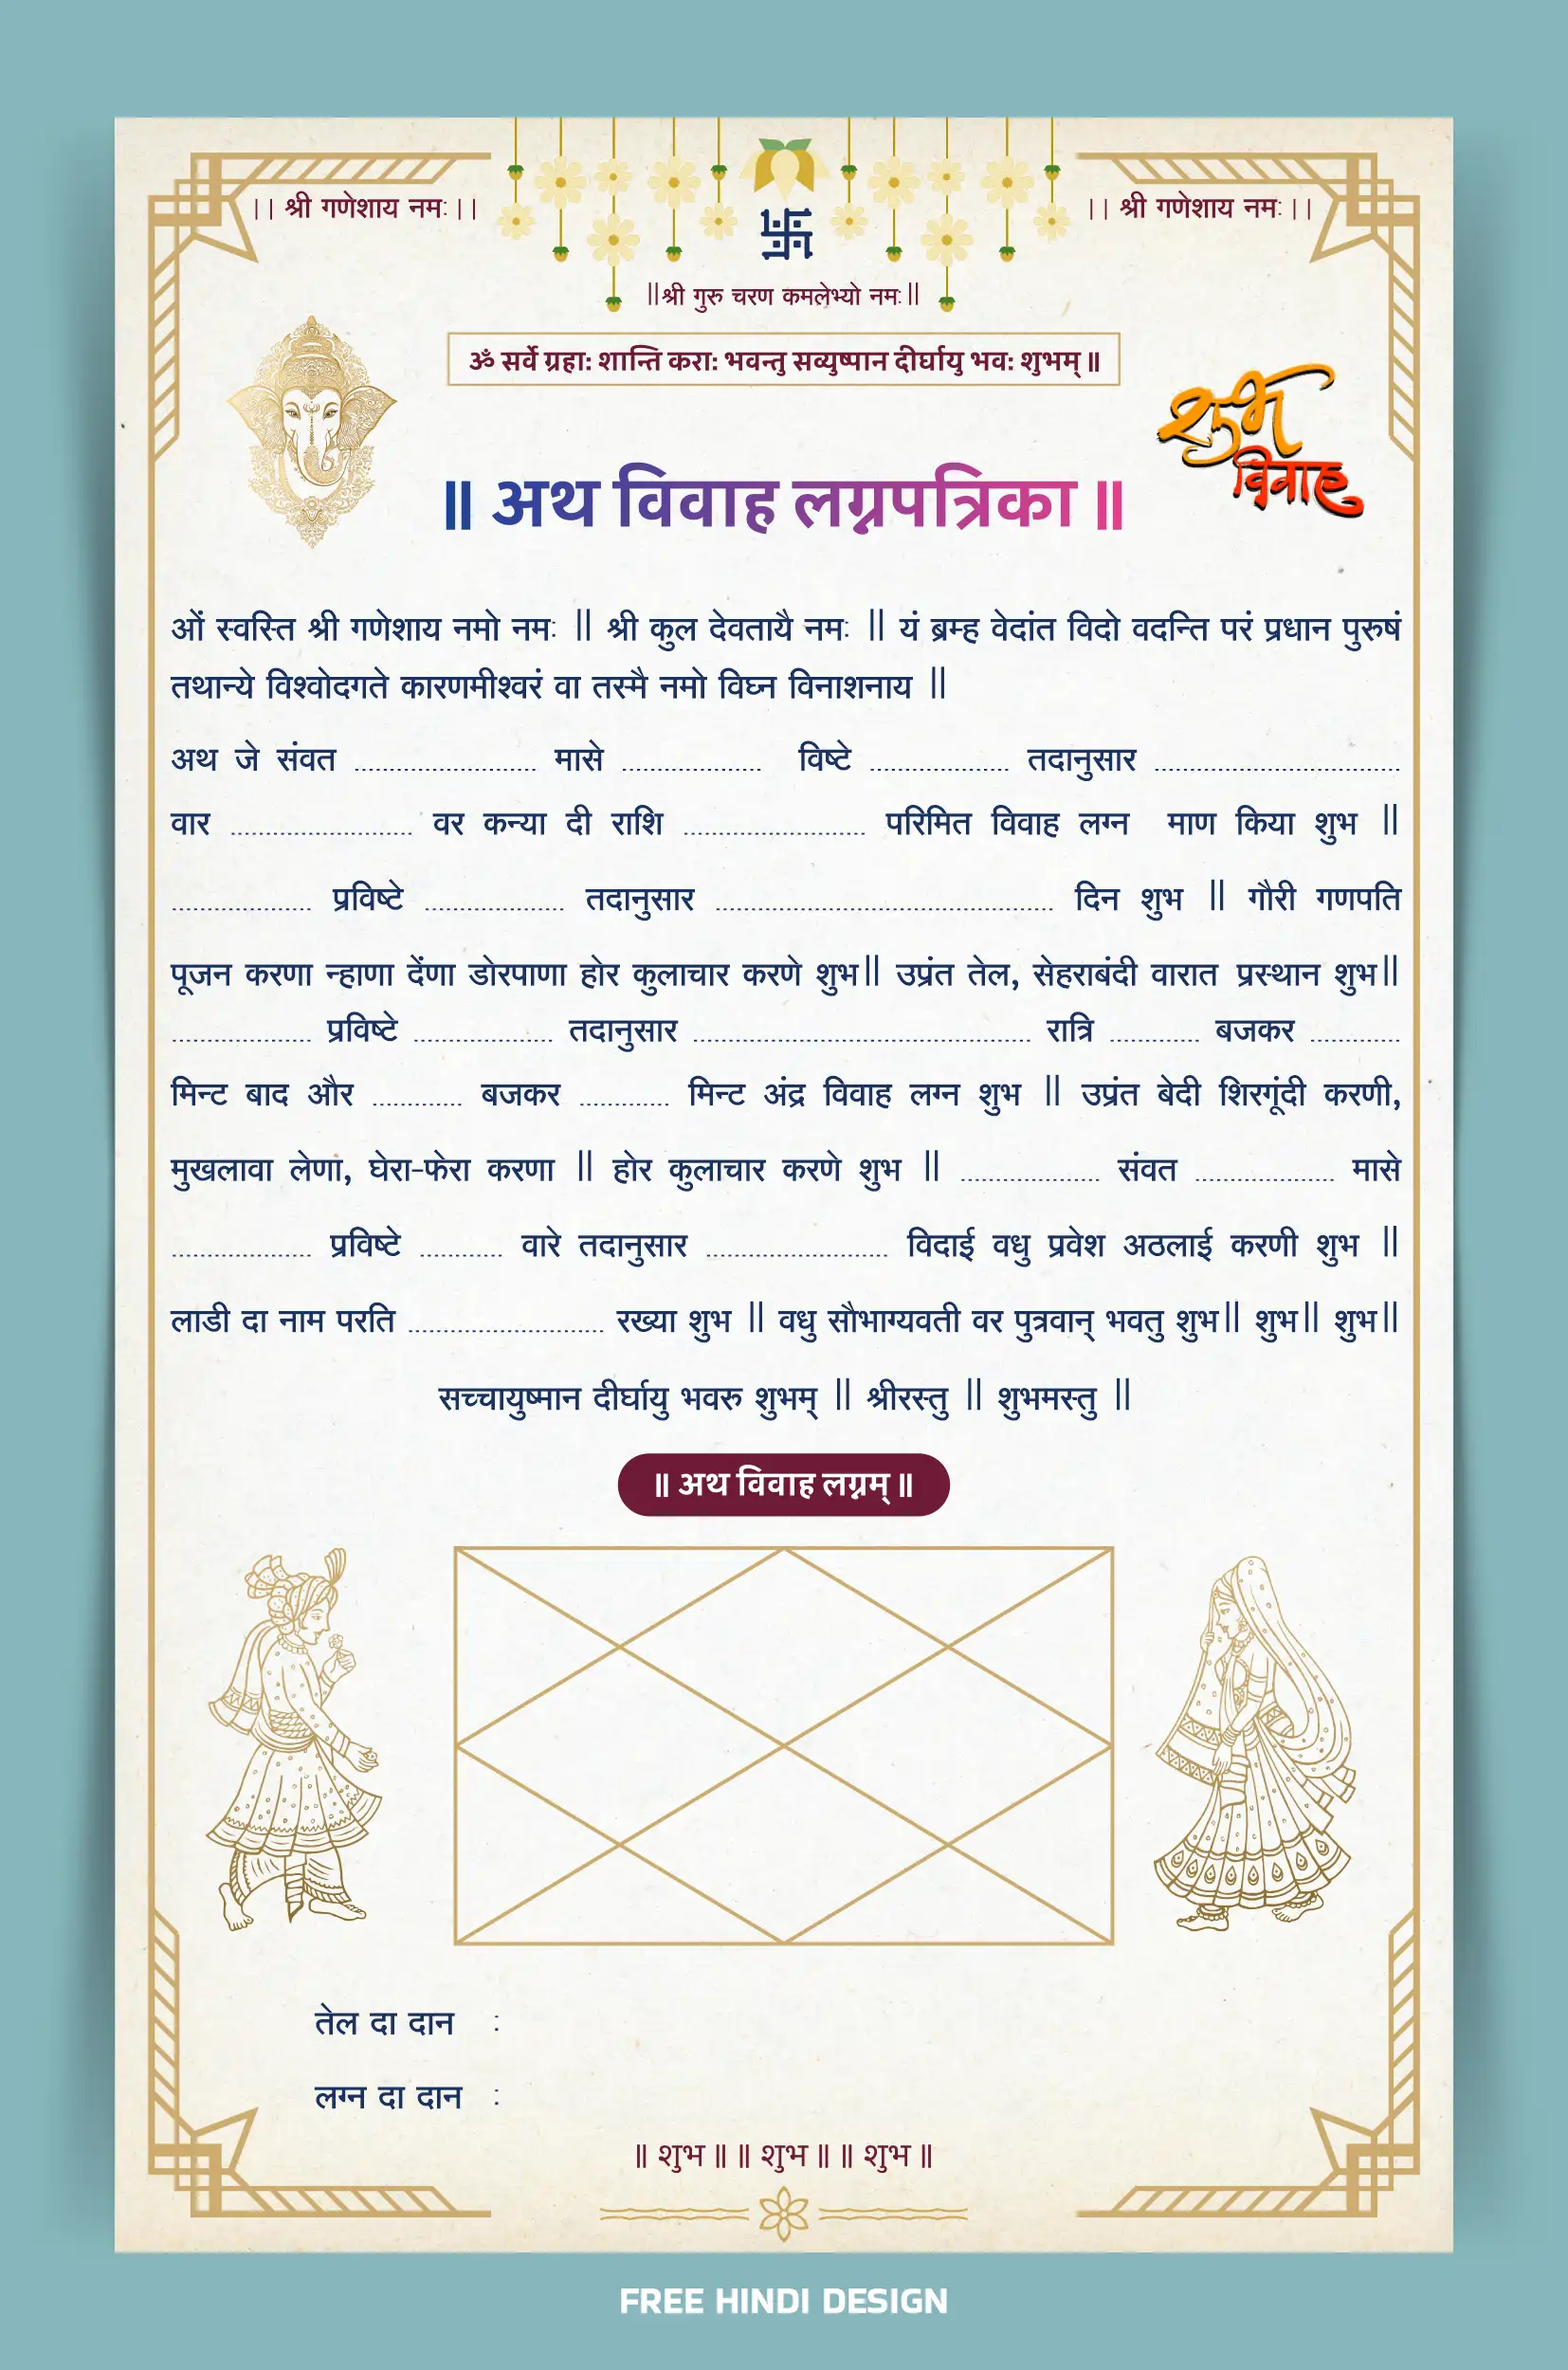 ।। श्री गणेशाय नमः ।।
।। श्री गणेशाय नमः ।।
॥श्री गुरु चरण कमलेभ्यो नमः॥
ॐ सर्वे ग्रहाः शान्ति कराः भवन्तु सव्युष्पान दीर्घायु भवः शुभम् ॥
शुभ
विवाह
॥ अथ विवाह लग्नपत्रिका ॥
ओं स्वस्ति श्री गणेशाय नमो नमः ॥ श्री कुल देवतायै नमः ॥ यं ब्रम्ह वेदांत विदो वदन्ति परं प्रधान पुरुषं
तथान्ये विश्वोदगते कारणमीश्वरं वा तस्मै नमो विघ्न विनाशनाय ॥
अथ जे संवत .................... मासे ................ विष्टे ................ तदानुसार ............................
वार .................... वर कन्या दी राशि .................... परिमित विवाह लग्न माण किया शुभ ॥
................ प्रविष्टे ................ तदानुसार ...................................... दिन शुभ ॥ गौरी गणपति
पूजन करणा न्हाणा देंणा डोरपाणा होर कुलाचार करणे शुभ॥ उप्रंत तेल, सेहराबंदी वारात प्रस्थान शुभ॥
................ प्रविष्टे ................ तदानुसार ...................................... रात्रि .......... बजकर ..........
मिन्ट बाद और .......... बजकर .......... मिन्ट अंद्र विवाह लग्न शुभ ॥ उप्रंत बेदी शिरगूंदी करणी,
मुखलावा लेणा, घेरा-फेरा करणा ॥ होर कुलाचार करणे शुभ ॥ ................ संवत ................ मासे
................ प्रविष्टे .......... वारे तदानुसार .................... विदाई वधु प्रवेश अठलाई करणी शुभ ॥
लाडी दा नाम परति ...................... रख्या शुभ ॥ वधु सौभाग्यवती वर पुत्रवान् भवतु शुभ॥ शुभ॥ शुभ॥
सच्चायुष्मान दीर्घायु भवरु शुभम् ॥ श्रीरस्तु ॥ शुभमस्तु ॥
॥ अथ विवाह लग्नम् ॥
तेल दा दान :
लग्न दा दान :
॥ शुभ ॥ ॥ शुभ ॥ ॥ शुभ ॥
FREE HINDI DESIGN